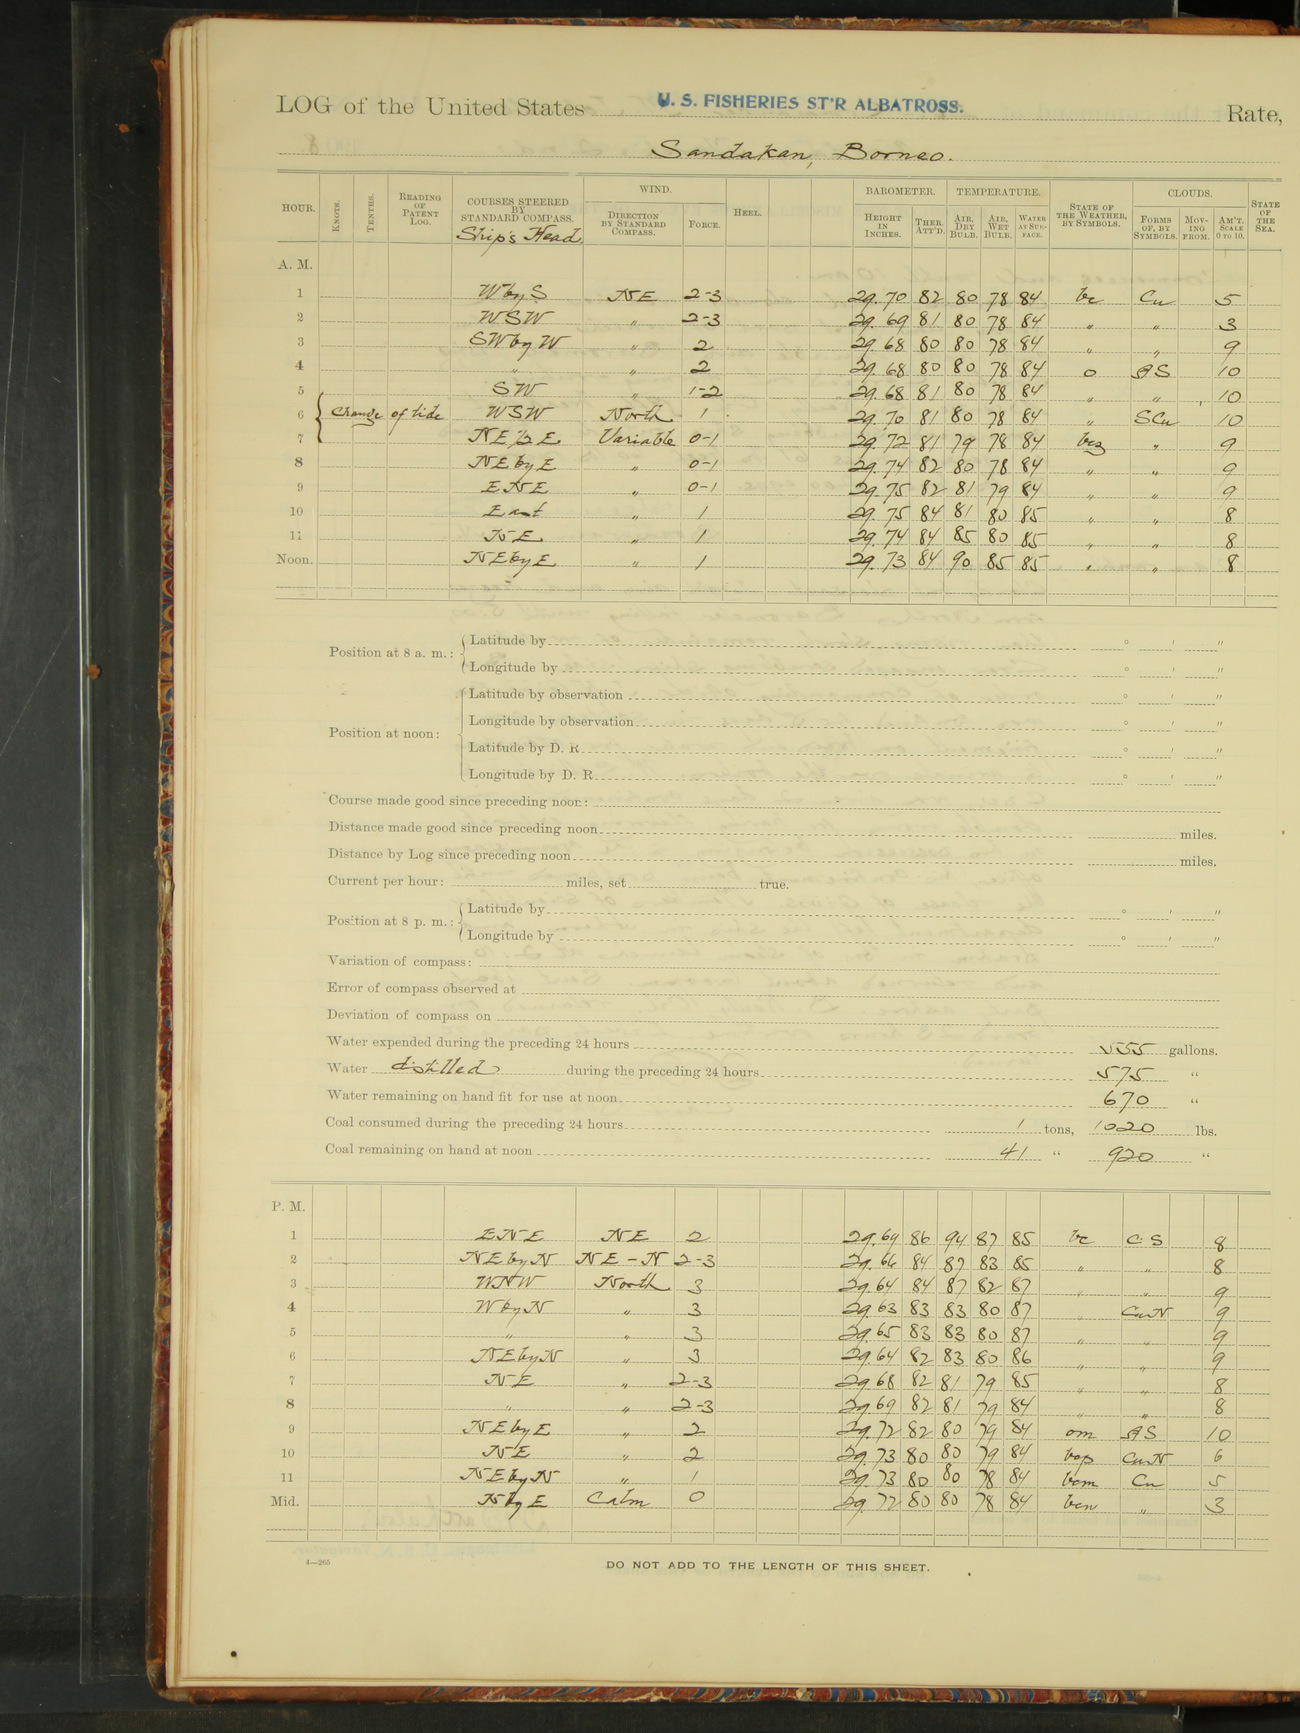 LOG of the United States U. S. FISHERIES ST'R ALBATROSS. Rate,
Sandakan, Borneo.
HOUR. KNOTS. TENTHS. READING OF PATENT LOG. COURSES STEERED BY STANDARD COMPASS. Ship's Head. WIND. DIRECTION BY STANDARD COMPASS. FORCE. HEEL. BAROMETER. HEIGHT IN INCHES. THER. ATT'D. TEMPERATURE. AIR, DRY BULB. AIR, WET BULB. WATER AT SURFACE. STATE OF THE WEATHER, BY SYMBOLS. CLOUDS. FORMS OF, BY SYMBOLS. MOVING FROM. AM'T. SCALE 0 TO 10. STATE OF THE SEA.
A. M.
1 W by S NE 2-3 29.70 82 80 78 84 bc Cu 5
2 WSW " 2-3 29.69 81 80 78 84 " " 3
3 SW by W " 2 29.68 80 80 78 84 " " 9
4 " " 2 29.68 80 80 78 84 o AS 10
5 SW " 1-2 29.68 81 80 78 84 " " 10
6 Change of tide WSW North 1 29.70 81 80 78 84 " SCu 10
7 NE ½ E Variable 0-1 29.72 81 79 78 84 bcz " 9
8 NE by E " 0-1 29.74 82 80 78 84 " " 9
9 ENE " 0-1 29.75 82 81 79 84 " " 9
10 East " 1 29.75 84 81 80 85 " " 8
11 NE " 1 29.74 84 85 80 85 " " 8
Noon. NE by E " 1 29.73 84 90 85 85 " " 8
Position at 8 a. m.: Latitude by ° ' "
Longitude by ° ' "
Position at noon: Latitude by observation ° ' "
Longitude by observation ° ' "
Latitude by D. R. ° ' "
Longitude by D. R. ° ' "
Course made good since preceding noon:
Distance made good since preceding noon miles.
Distance by Log since preceding noon miles.
Current per hour: miles, set true.
Position at 8 p. m.: Latitude by ° ' "
Longitude by ° ' "
Variation of compass:
Error of compass observed at
Deviation of compass on
Water expended during the preceding 24 hours 555 gallons.
Water distilled during the preceding 24 hours 575 "
Water remaining on hand fit for use at noon 670 "
Coal consumed during the preceding 24 hours 1 tons, 1020 lbs.
Coal remaining on hand at noon 41 " 920 "
P. M.
1 ENE NE 2 29.69 86 94 87 85 bc C.S 8
2 NE by N NE-N 2-3 29.66 84 87 83 85 " " 8
3 WNW North 3 29.64 84 87 82 87 " " 9
4 W by N " 3 29.63 83 83 80 87 CuN 9
5 " " 3 29.65 83 83 80 87 " " 9
6 NE by N " 3 29.64 82 83 80 86 " " 9
7 NE " 2-3 29.68 82 81 79 85 " " 8
8 " " 2-3 29.69 82 81 79 84 " " 8
9 NE by E " 2 29.72 82 80 79 84 om AS 10
10 NE " 2 29.73 80 80 79 84 bcp CuN 6
11 NE by N " 1 29.73 80 80 78 84 bcm Cu 5
Mid. N by E Calm 0 29.72 80 80 78 84 bcm " 3
4—265
DO NOT ADD TO THE LENGTH OF THIS SHEET.